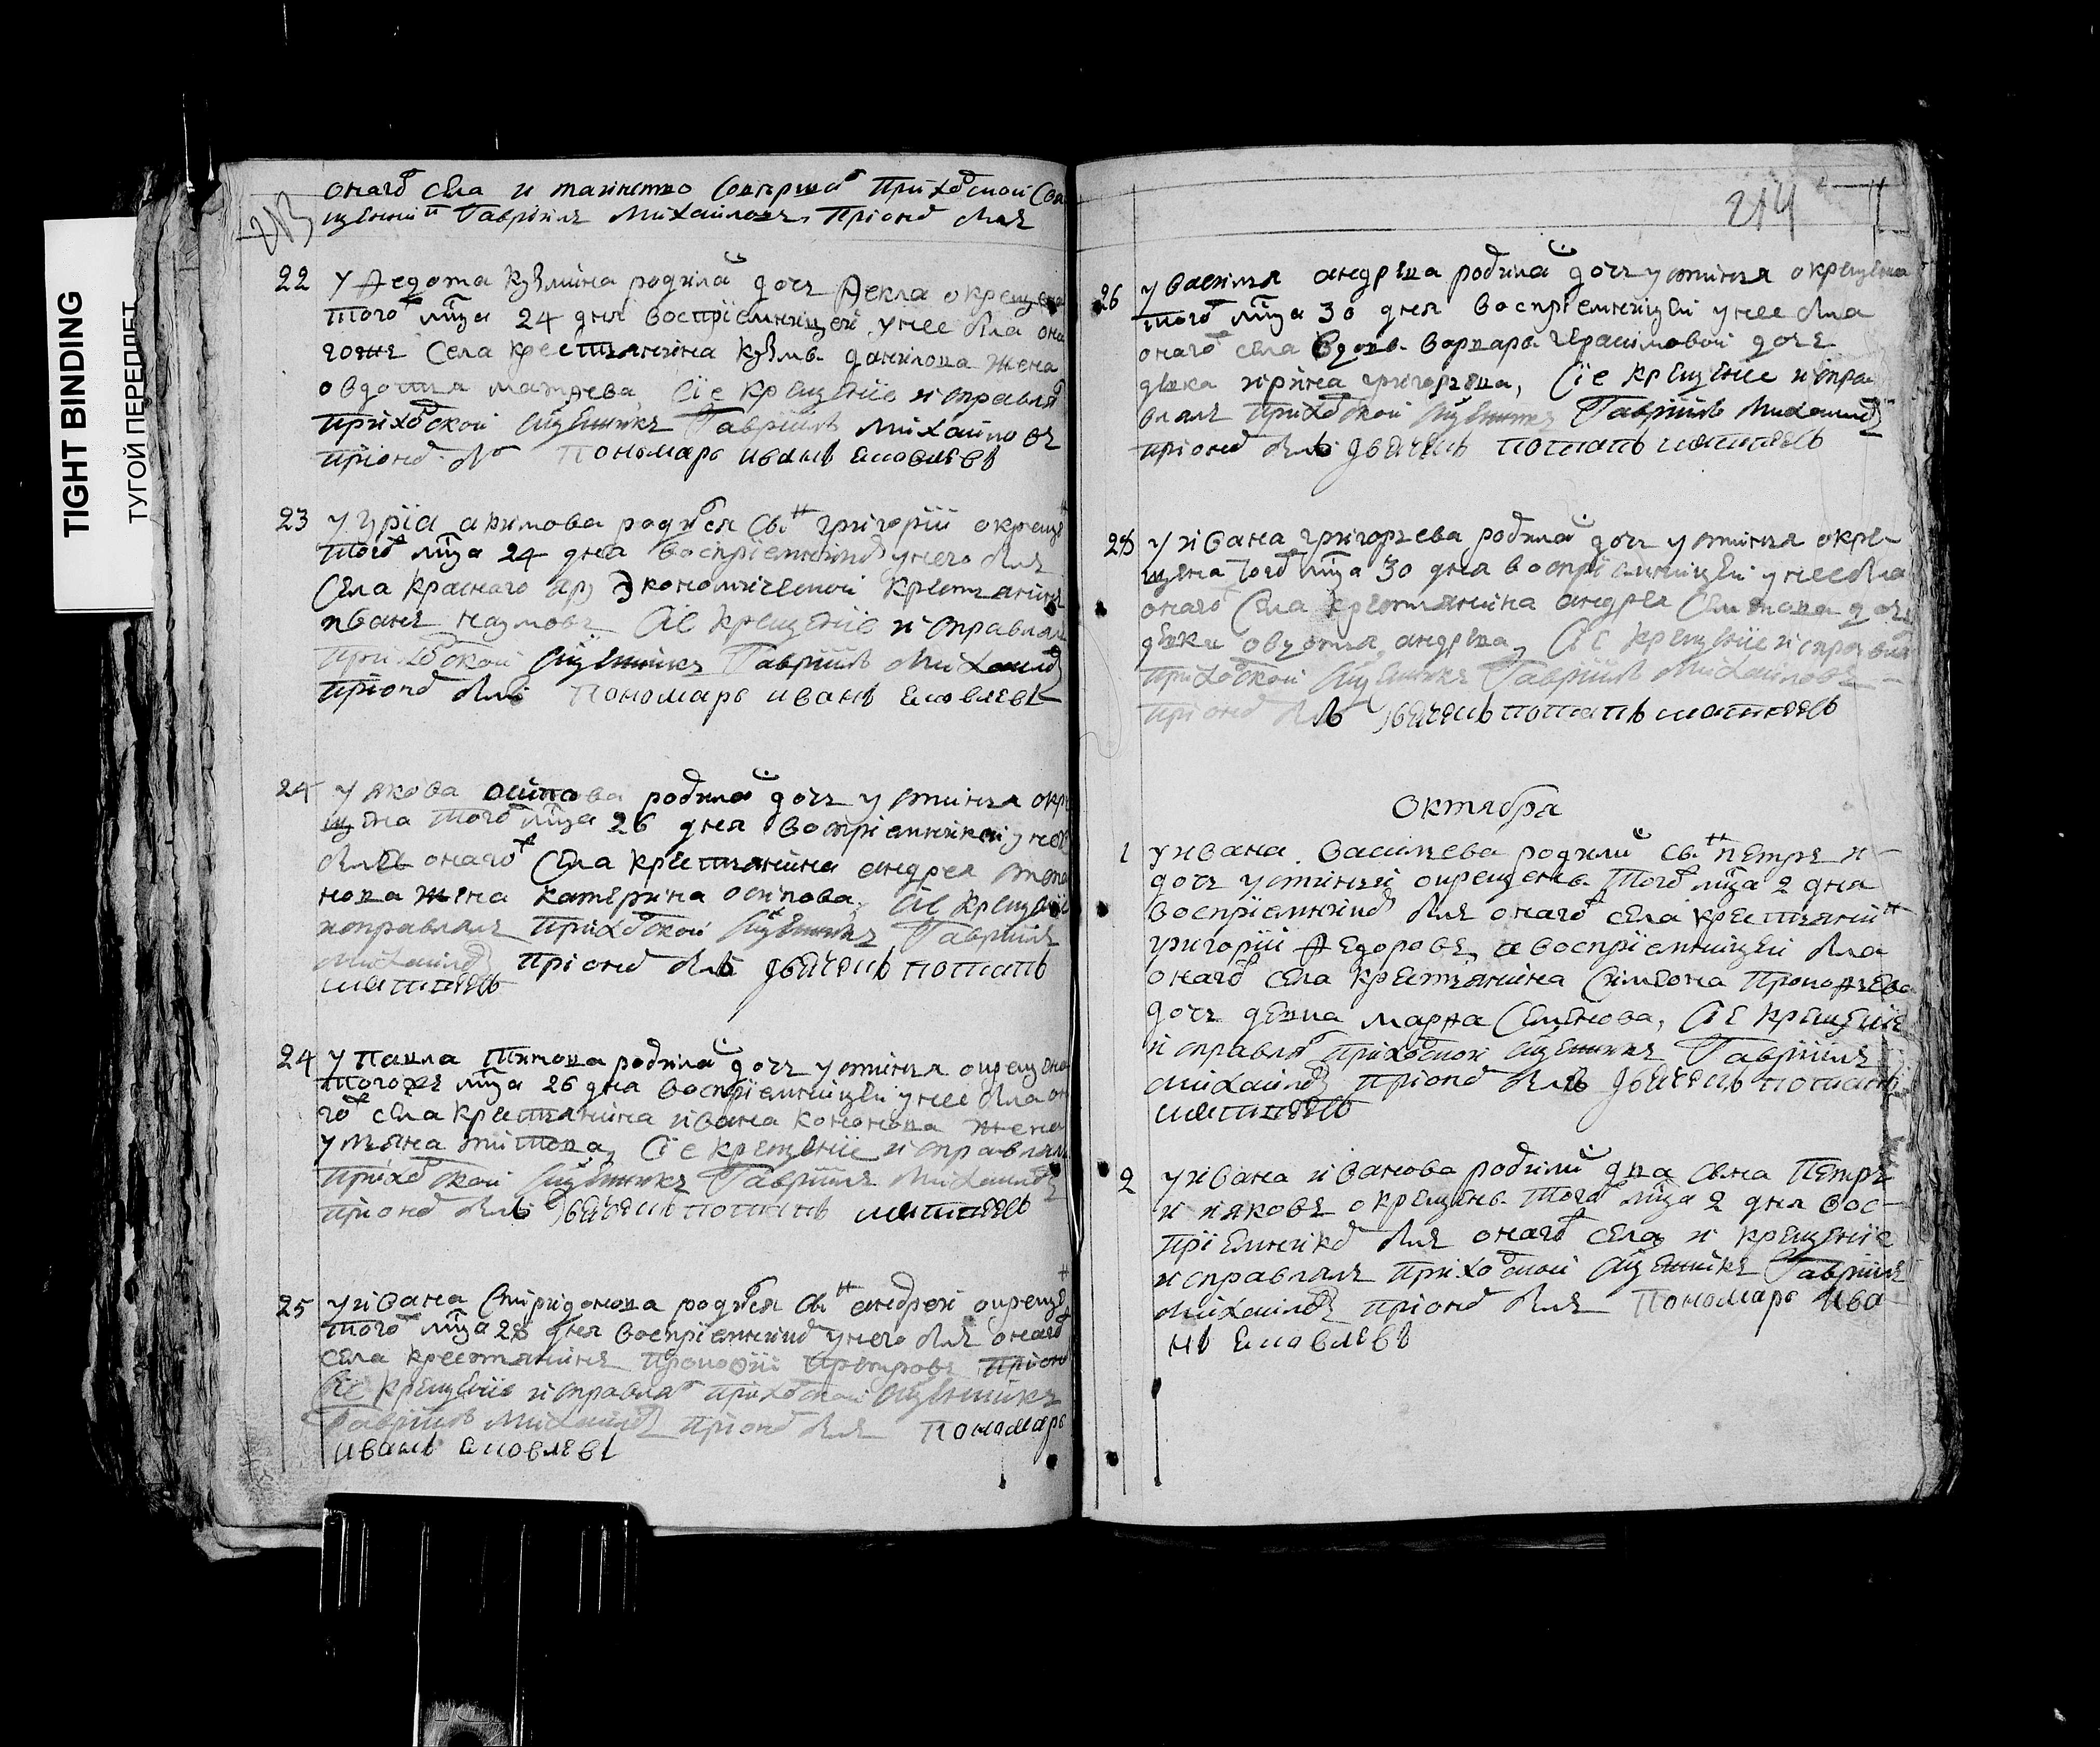 TIGHT BINDING
ТУГОЙ ПЕРЕПЛЕТ
213
онаго села и таинство совершалъ приходской свя
щенникъ Гаврiилъ Михайловъ, при ономъ былъ
22 У Ѳедота Кузмина родилась дочь Ѳекла окрещена
того мца 24 дня воспрiемницей у нее была она
гожъ села крестьянина Кузмы Данилова жена
Овдотья Матѳева, сiе крещенiе исправлялъ
приходской сщенникъ Гаврiилъ Михайловъ
при ономъ былъ Пономарь Иванъ Яковлевъ
23 У Урiа Акимова родился сынъ Григорiй окрещенъ
того мца 24 дня воспрiемникомъ у него былъ
села Краснаго Яру экономической крестьянинъ
Иванъ Наумовъ сiе крещенiе исправлялъ
приходской сщенникъ Гаврiилъ Михайловъ
при ономъ былъ Пономарь Иванъ Яковлевъ
24 У Якова Осипова родилась дочь Устинья окре
щена того мца 26 дня воспрiемникомъ у нее
была онаго села крестьянина Андрея
жена Катерина Осипова, сiе крещенiе
исправлялъ приходской сщенникъ Гаврiилъ
Михайловъ при ономъ былъ дьячекъ Потапъ
Матвѣевъ
24 У Павла Титова родилась дочь Устинья окрещена
тогожъ мца 26 дня воспрiемницей у нее была она
го села крестьянина Ивана Кононова жена
Ульяна Титова, сiе крещенiе исправлялъ
приходской сщенникъ Гаврiилъ Михайловъ
при ономъ былъ дьячекъ Потапъ Матвѣевъ
25 У Ивана Спиридонова родился сынъ Андрей окрещенъ
того мца 28 дня воспрiемникомъ у него былъ онаго
села крестьянинъ Прокофiй Петровъ при ономъ
сiе крещенiе исправлялъ приходской сщенникъ
Гаврiилъ Михайловъ при ономъ былъ Пономарь
Иванъ Яковлевъ
214
26 У Василья Андрѣева родилась дочь Устинья окрещена
того мца 30 дня воспрiемницей у нее была
онаго села вдовы Варвары Герасимовой дочь
дѣвка Ирина Григорьева, сiе крещенiе испра
влялъ приходской сщенникъ Гаврiилъ Михайловъ
при ономъ былъ дьячекъ Потапъ Матвѣевъ
28 У Ивана Григорьева родилась дочь Устинья окре
щена того мца 30 дня воспрiемницей у нее была
онаго села крестьянина Андрея Семенова дочь
дѣвка Овдотья Андрѣева, сiе крещенiе исправлялъ
приходской сщенникъ Гаврiилъ Михайловъ
при ономъ былъ дьячекъ Потапъ Матвѣевъ
Октября
1 У Ивана Васильева родились сынъ Петръ и
дочь Устинья окрещены того мца 2 дня
воспрiемникомъ былъ онаго села крестьянинъ
Григорiй Ѳедоровъ, а воспрiемницей была
онаго села крестьянина Симеона Прокофьева
дочь девка Марѳа Семенова, сiе крещенiе
исправлялъ приходской сщенникъ Гаврiилъ
Михайловъ при ономъ былъ дьячекъ Потапъ
Матвѣевъ
2 У Ивана Иванова родились два сына Петръ
и Яковъ окрещены того мца 2 дня вос
прiемникомъ былъ онаго села и крещенiе
исправлялъ приходской сщенникъ Гаврiилъ
Михайловъ при ономъ былъ Пономарь Ива
нъ Яковлевъ